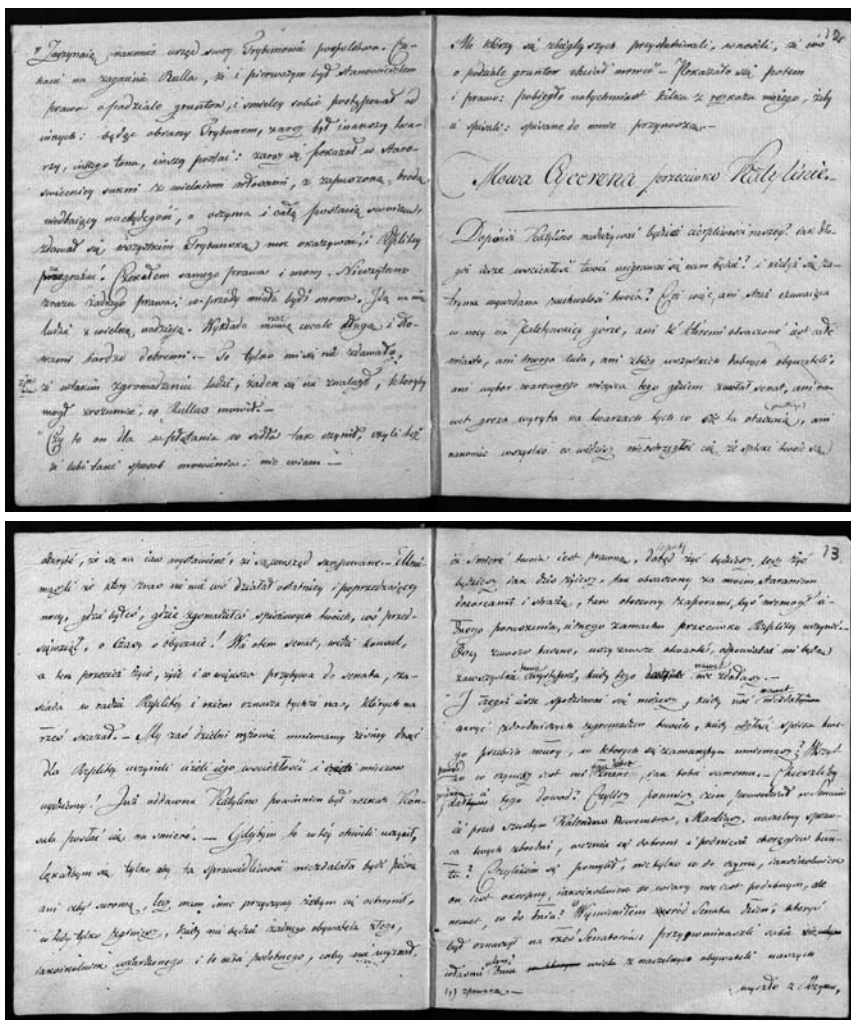 Zaczynaią nakoniec urząd swoy Trybunowie pospolstwa. Cze-
kano na zagaienie Rulla, że i pierwszym był stanowicielem
prawa o podziale gruntow, i smieley sobie postępował od
innych: będąc obrany Trybunem, zaraz był inakszy twa-
rzy, inszego tonu, inszey postaci: zaraz się pokazał w staro-
swieckiey sukni z wielkiemi włosami, z zapuszczoną brodą
a oczyma i całą postacią
zdawał się wszystkim Trybunską moc okazywać, i Rzplitey
pograżać. Czekałem samego prawa i mowy. Nieczytano
zrazu żadnego prawa, w przody miała bydź mowa. Idą na nią
ludzie z wielką nadzieią. Wykłada mowę wcale długą i sło-
wami bardzo dobremi. — To tylko mi się nie zdawało,
że w takim zgromadzeniu ludzi, żaden się nie znalazł, ktoryby
mogł zrozumieć, co Rullus mowił. —
Czy to on dla w sidła tak czynił, czyli też
że lubi taki sposob mowienia: nie wiem —
12
Ale ktorzy się zbiegłszych przysłuchiwali, wnosili, że coś
o podziale gruntow chciał mowić — Pokazało się potem
i prawo: pobiegło natychmiast kilku z rozkazu moiego, żeby
ie spisali: spisane do mnie przynoszą —
Mowa Cycerona przeciwko Katylinie.
Dopokiż Katylino nadużywać będziesz cierpliwości naszey? iak dłu-
goż ieszcze wsciekłość twoia naigrawać się nam będzie? i kiedyż się za-
trzyma wyuzdana zuchwałość twoia? Coż więc, ani straż czuwaiąca
w nocy na Palatynskiey gorze, ani te ktoremi otoczone iest całe
miasto, ani trwoga ludu, ani zbieg wszystkich dobrych obywateli,
ani wybor warownego mieysca tego gdziem zwołał senat, ani na-
wet groza wyryta na twarzach tych co cię tu otaczaią, ani
nakoniec wszystko co widzisz nieostrzegłoż cię że spiski twoie są
odkryte, że są na iaw wystawione, że są zewsząd skrępowane. — Mnie-
maszli że ktory znas nie wie coś działał ostatniey i poprzedzaiącey
nocy, gdzie byłeś, gdzie zgromadziłeś spiskowych twoich, coś przed-
sięwziął, o Czasy o obyczaie! Wie otem senat, widzi konsul,
a ten przecież żyie, żyie i w większa przybywa do senatu, za-
siada w radzie Rzplitey i okiem oznacza tychże nas, ktorych na
rzeź skazał. — My zaś dzielni mężowie mniemamy żeśmy dosyć
dla Rzplitey uczynili ieżeli iego wsciekłości i mieczow
uydziemy! Już oddawna Katylino powinien był rozkaz Kon-
sula posłać cię na smierć. — Gdybym to w tey chwili uczynił,
lękałbym się tylko aby ta sprawiedliwość niezdała się bydź pozna
ani zbyt surową, lecz mam inne przyczyny żebym cię ochronił,
w tedy tylko zginiesz, kiedy nie będzie żadnego obywatela złego,
iakożkolwiek wzgardzonego i to tobie podobnego, coby nie wyznał,
13
iż śmierć twoia iest prawną, dotąd żyć będziesz, lecz żyć
będziesz iak dziś żyiesz, tak otoczony za moiem staraniem
dozorcami i strażą, tak otoczony zaporami, byś niemogł ża-
dnego poruszenia, żadnego zamachu przeciwko Rzplitey uczynić.
Oczy zawsze baczne, uszy zawsze otwarte, odpowiadać mi będą
zawszystkie twoie czynności, kiedy tego nawet nie zbadasz. —
I czegoż ieszcze spodziewać się możesz, kiedy noc nawet
ukryć zbrodniczych zgromadzeń twoich, kiedy odgłos spisku twe-
go przebiia mury, w ktorych się zamkniętym mniemasz? Wszyst-
ko co czynisz iest mi znane, iak tobie samemu. — Chceszliby
tego dowod? Czyliż pomnisz, com powiedział w Senacie
iż przed szostym Kalendow Nowembra, Manliusz, naczelny spraw-
ca twych zbrodni, wezmie się do broni i podniesie chorągiew bun-
tu? Czylikiem się pomylił, nie tylko co do czynu, iakożkolwiek
on iest okropny, iakożkolwiek do wiary nie iest podobnym, ale
nawet, co do dnia? Wymieniłem wśrod Senatu dzień, ktoryś
był oznaczył na rzeź Senatorow: przypominaszli sobie
własnie wielu z naczelnego obywateli naszych
wyszło z Rzymu,